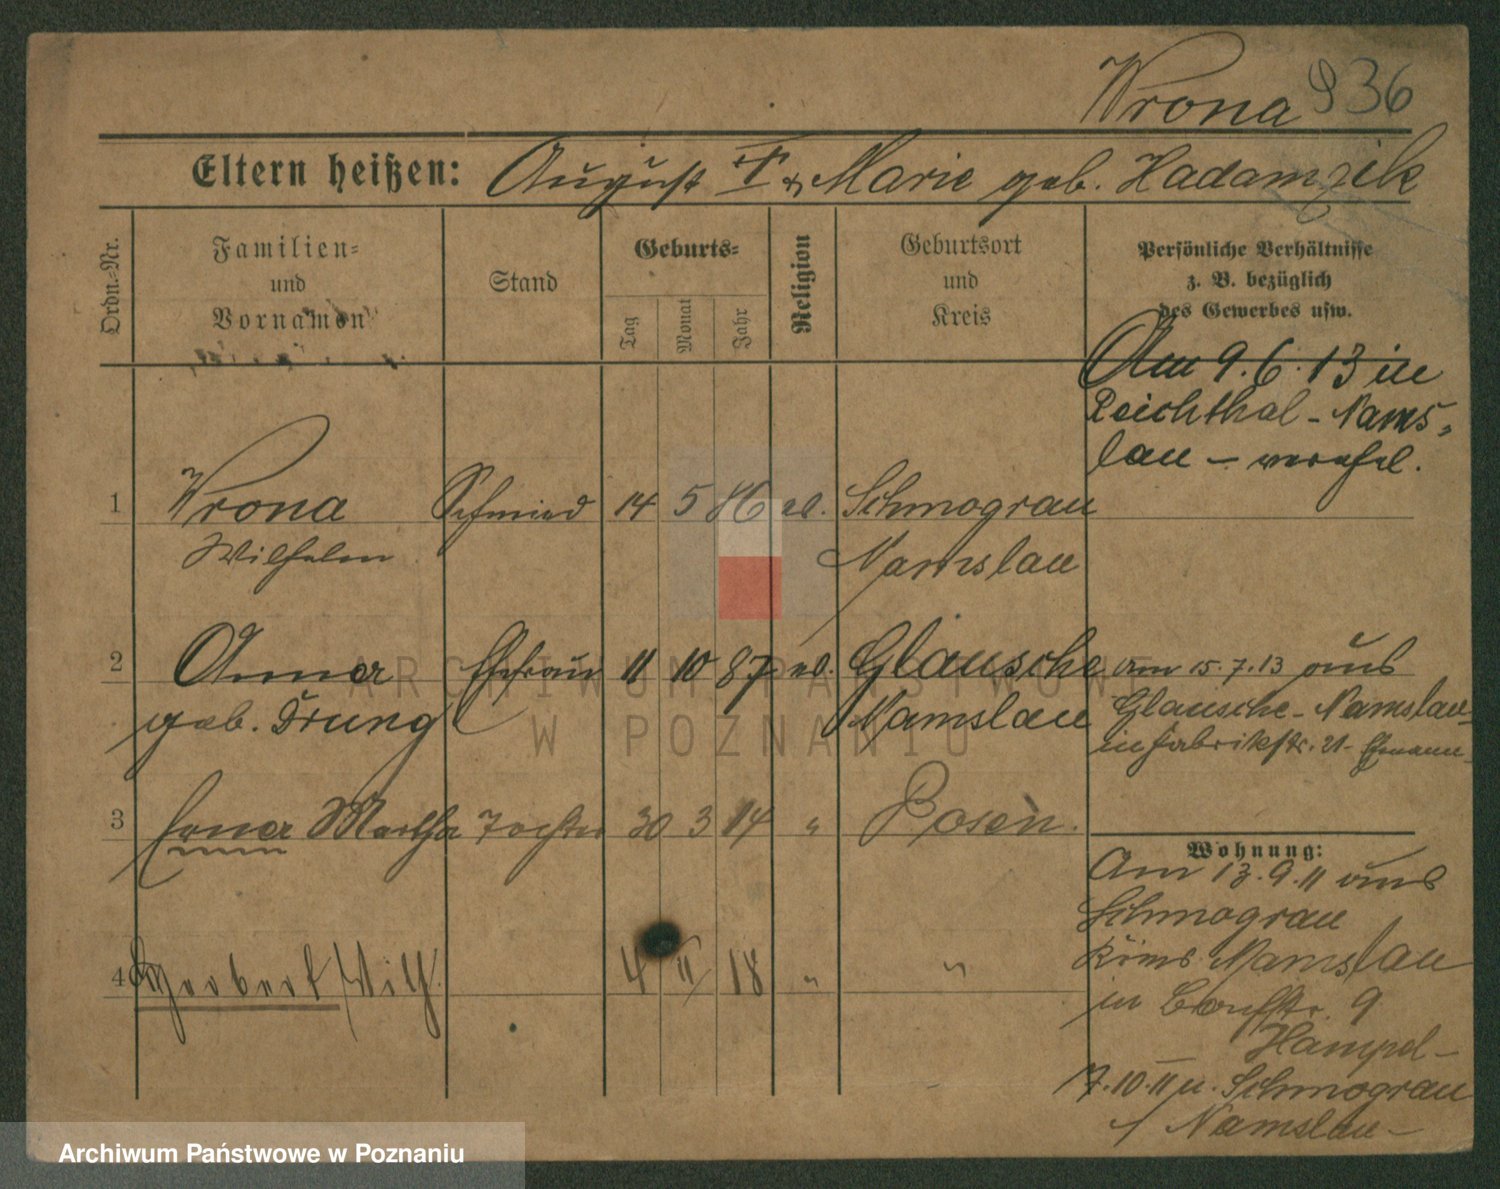 Wrona 936
Eltern heißen: August † u. Marie geb. Hadamzik
Ordn.-Nr.
Familien-
und
Vornamen
Stand
Geburts-
Tag
Monat
Jahr
Religion
Geburtsort
und
Kreis
Persönliche Verhältnisse
z. B. bezüglich
des Gewerbes usw.
Am 9.6.13 in
Reichthal - Nams-
lau - verehel.
1 Wrona Schmied 14 5 86 ev. Schmograu
Wilhelm Namslau
2 Anna Ehefrau 11 10 87 ev. Glausche am 15.7.13 aus
geb. Drung Namslau Glausche - Namslau -
in Fabrikstr. 21 - Ehemann -
3 Erna Martha Tochter 30 3 14 " Posen.
Wohnung:
Am 13.9.11 aus
Schmograu
Kreis Namslau
4 Herbert Wilh. 4 II 18 " "
in 9
Hampel -
7.10.11 n. Schmograu
/ Namslau -
ARCHIWUM PAŃSTWOWE
W POZNANIU
Archiwum Państwowe w Poznaniu